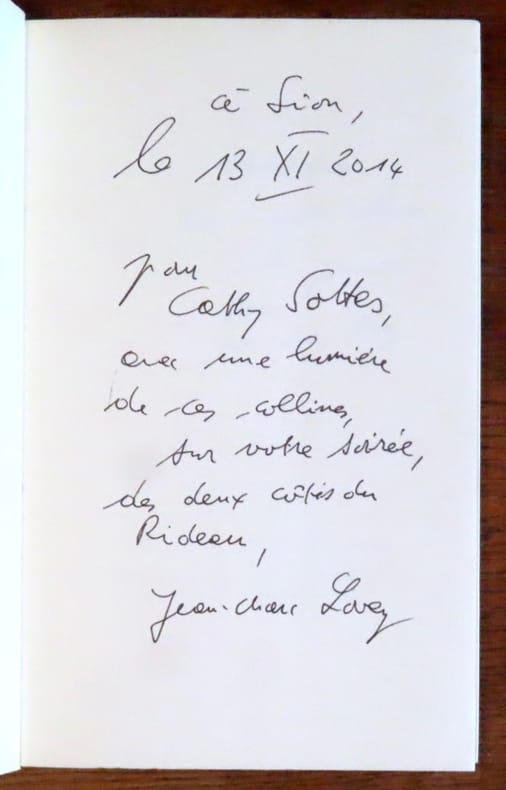 à Sion,
le 13 XI 2014
pour
Cathy Sottas,
avec une lumière
de ces collines,
sur votre soirée,
des deux côtés du
Rideau,
Jean-Marc Lovay